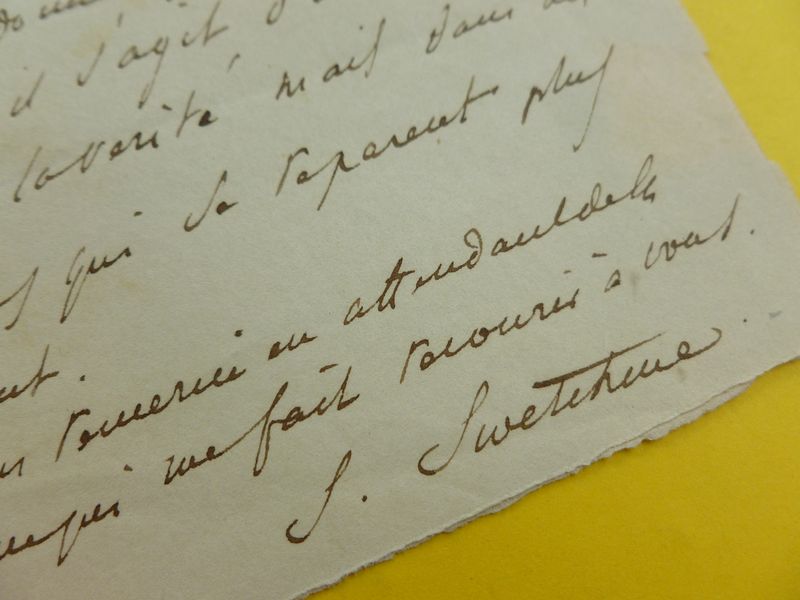 il s'agit
la verité, mais dans
qui se reparent plus
remercie en attendant de la
qui me fait recourir à vous.
S. Swetchine